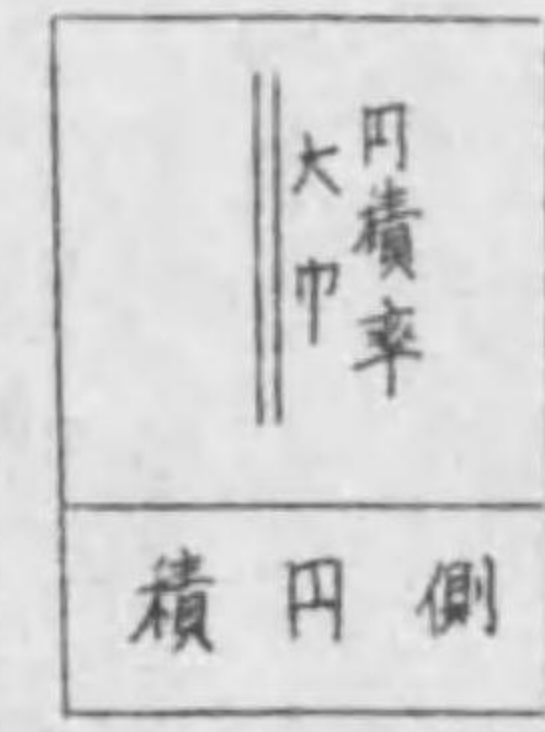 円積率
大巾
側円積